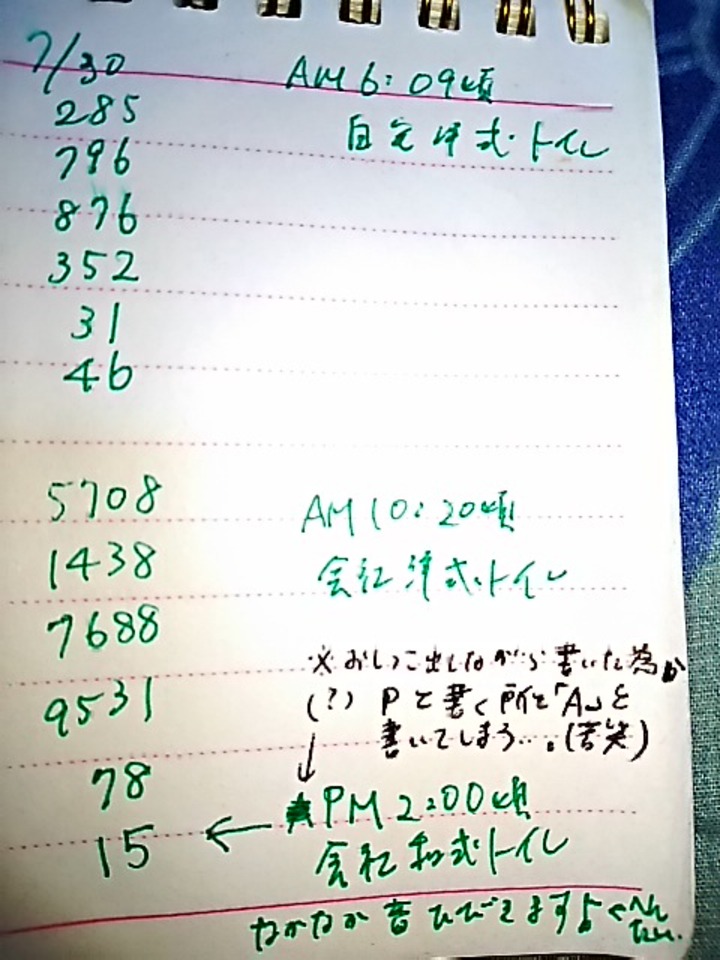 7/30 AM6:09頃
285 自宅洋式トイレ
796
876
352
31
46
5708 AM10:20頃
1438 会社洋式トイレ
7688
※おしっこ出しながら書いた為か
9531 (?) Pと書く所を「A」と
書いてしまう…。(苦笑)
78 PM2:00頃
15 ← 会社和式トイレ
なかなか音ひびきますよ